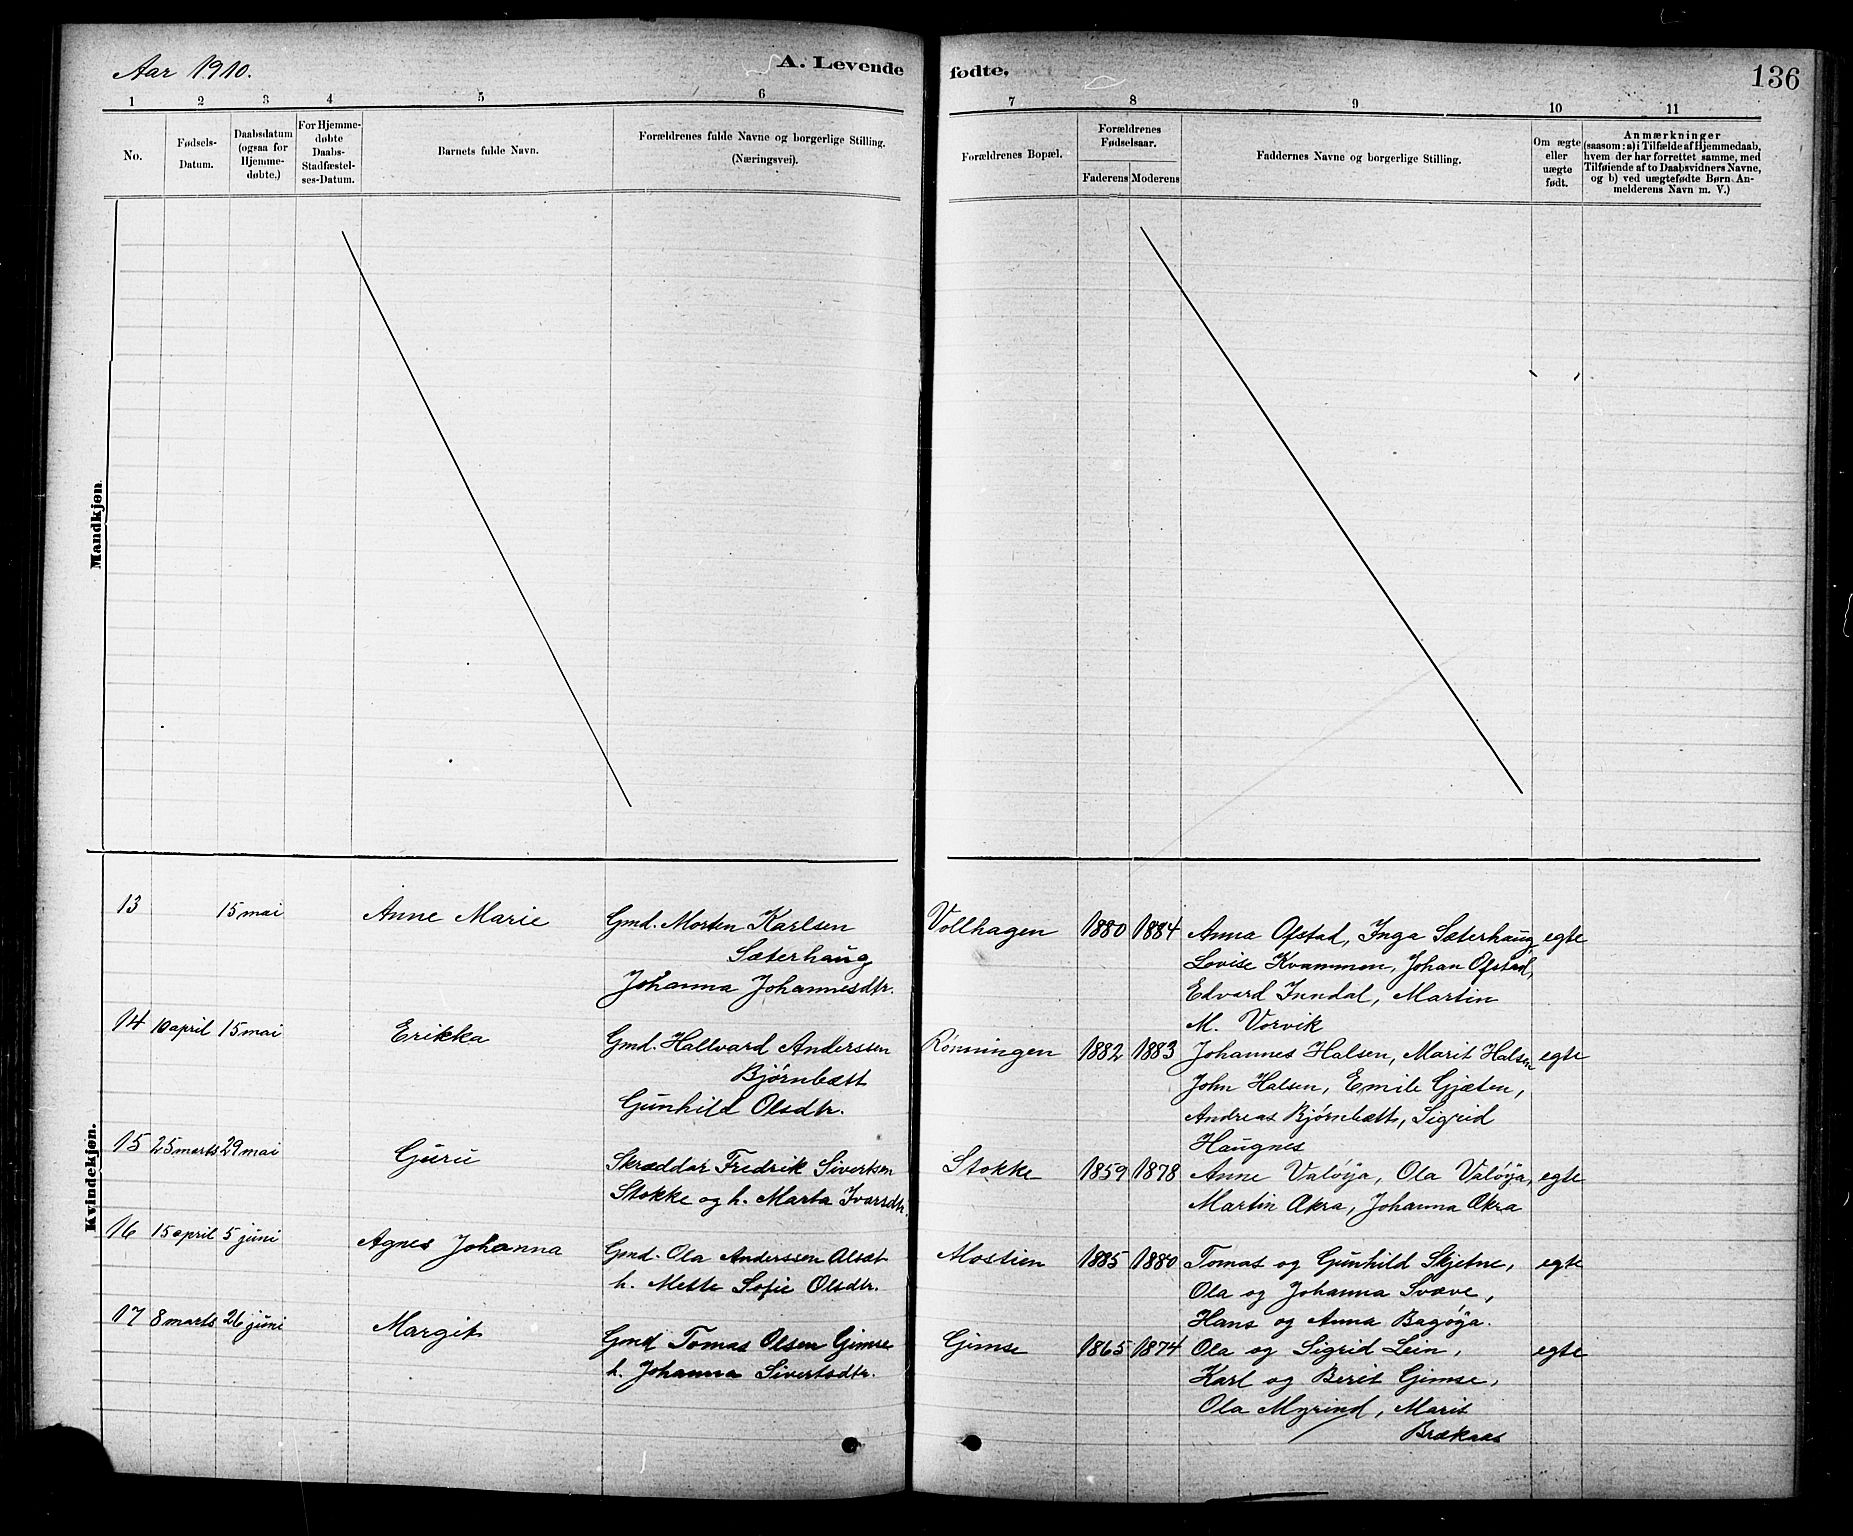 Aar 1910.
A. Levende
fødte.
136
1 2 3 4 5 6 7 8 9 10 11
No.
Fødsels-
Datum.
Daabsdatum
(ogsaa for
Hjemme-
døbte.)
For Hjemme-
døbte
Daabs-
Stadfæstel-
ses-Datum.
Barnets fulde Navn.
Forældrenes fulde Navne og borgerlige Stilling.
(Næringsvei).
Forældrenes Bopæl.
Forældrenes
Fødselsaar.
Faderens Moderens
Faddernes Navne og borgerlige Stilling.
Om ægte
eller
uægte
født.
Anmærkninger
(saasom: a) i Tilfælde af Hjemmedaab,
hvem der har forrettet samme, med
Tilføiende af to Daabsvidners Navne,
og b) ved uægtefødte Børn An-
melderens Navn m. V.)
Mandkjøn
Kvindekjøn.
13 15 mai Anne Marie Gmd. Morten Karlsen Vollhagen 1880 1884 Anna Ofstad, Inga Sæterhaug egte
Sæterhaug Lovise Kvammen, Johan Ofstad,
Johanna Johannesdtr. Edvard Inndal, Martin
M. Vorvik
14 10 april 15 mai Erikka Gmd. Hallvard Anderssen Rønningen 1882 1883 Johannes Halsen, Marit Halsen egte
Bjørnbætt John Halsen, Emile Gjæten,
Gunhild Olsdtr. Andreas Bjørnbætt, Sigrid
Haugnes
15 25 marts 29 mai Guru Skræddar Fredrik Sivertsen Stokke 1859 1878 Anne Valøya, Ola Valøya, egte
Stokke og h. Marta Ivarsdtr. Martin Økra, Johanna Økra
16 15 april 5 juni Agnes Johanna Gmd. Ola Anderssen Alsæt Mostien 1885 1880 Tomas og Gunhild Skjetne, egte
h. Mette Sofie Olsdtr. Ola og Johanna Svæve,
Hans og Anna Bagøya.
17 8 marts 26 juni Margit Gmd. Tomas Olsen Gimse Gimse 1865 1874 Ola og Sigrid Lein, egte
h. Johanna Sivertsdtr. Karl og Berit Gimse,
Ola Myrind, Marit
Brækaas